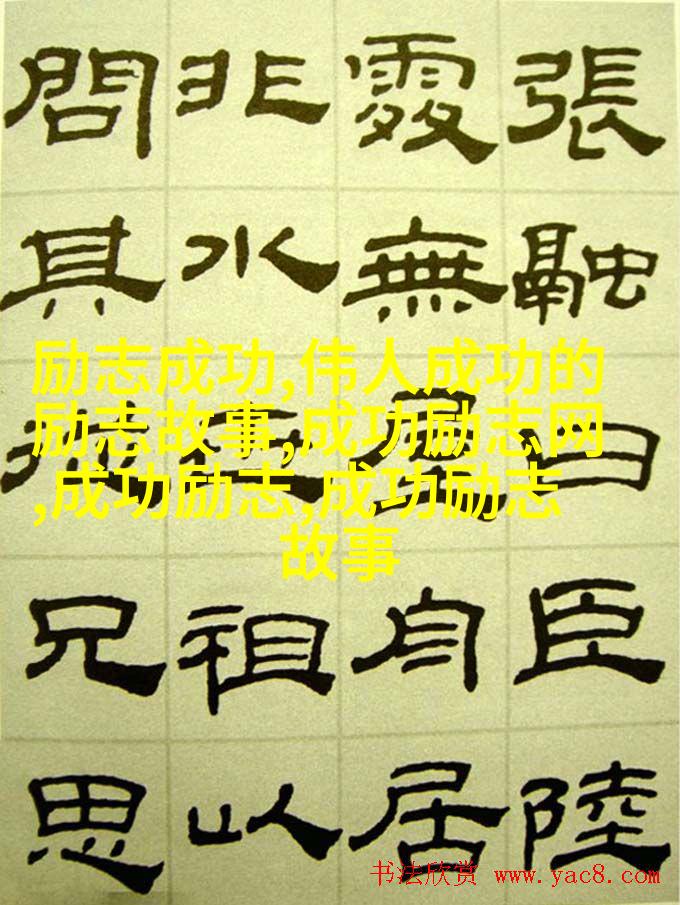 張融曰臣陸
處無屋舟居
非水祖以
問其兄思
励志成功,伟人成功的
励志故事,成功励志网
,成功励志,成功励志
故事
书法欣赏 www.yac8.com